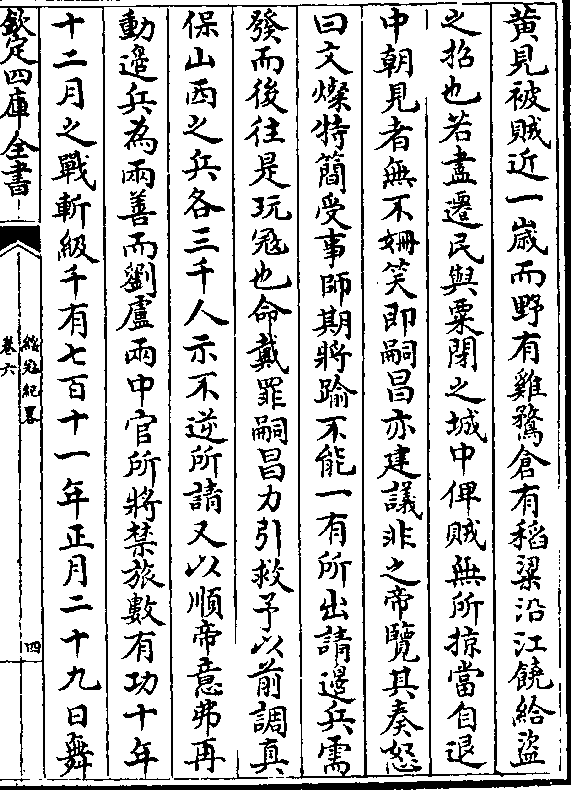 黃見被賊近一嵗而野有雞鶩倉有稻粱沿江饒給盜
之招也若盡遷民與粟閉之城中俾賊無所掠當自退
中朝見者無不姍笑即嗣昌亦建議非之帝覽其奏怒
曰文燦特簡受事師期將踰不能一有所出請邊兵需
發而後往是玩冦也命戴罪嗣昌力引救予以前調真
保山西之兵各三千人示不逆所請又以順帝意弗再
動邊兵為兩善而劉盧兩中官所將禁旅數有功十年
十二月之戰斬級千有七百十一年正月二十九日舞
欽定四庫全書
綏冦紀畧
卷六
四